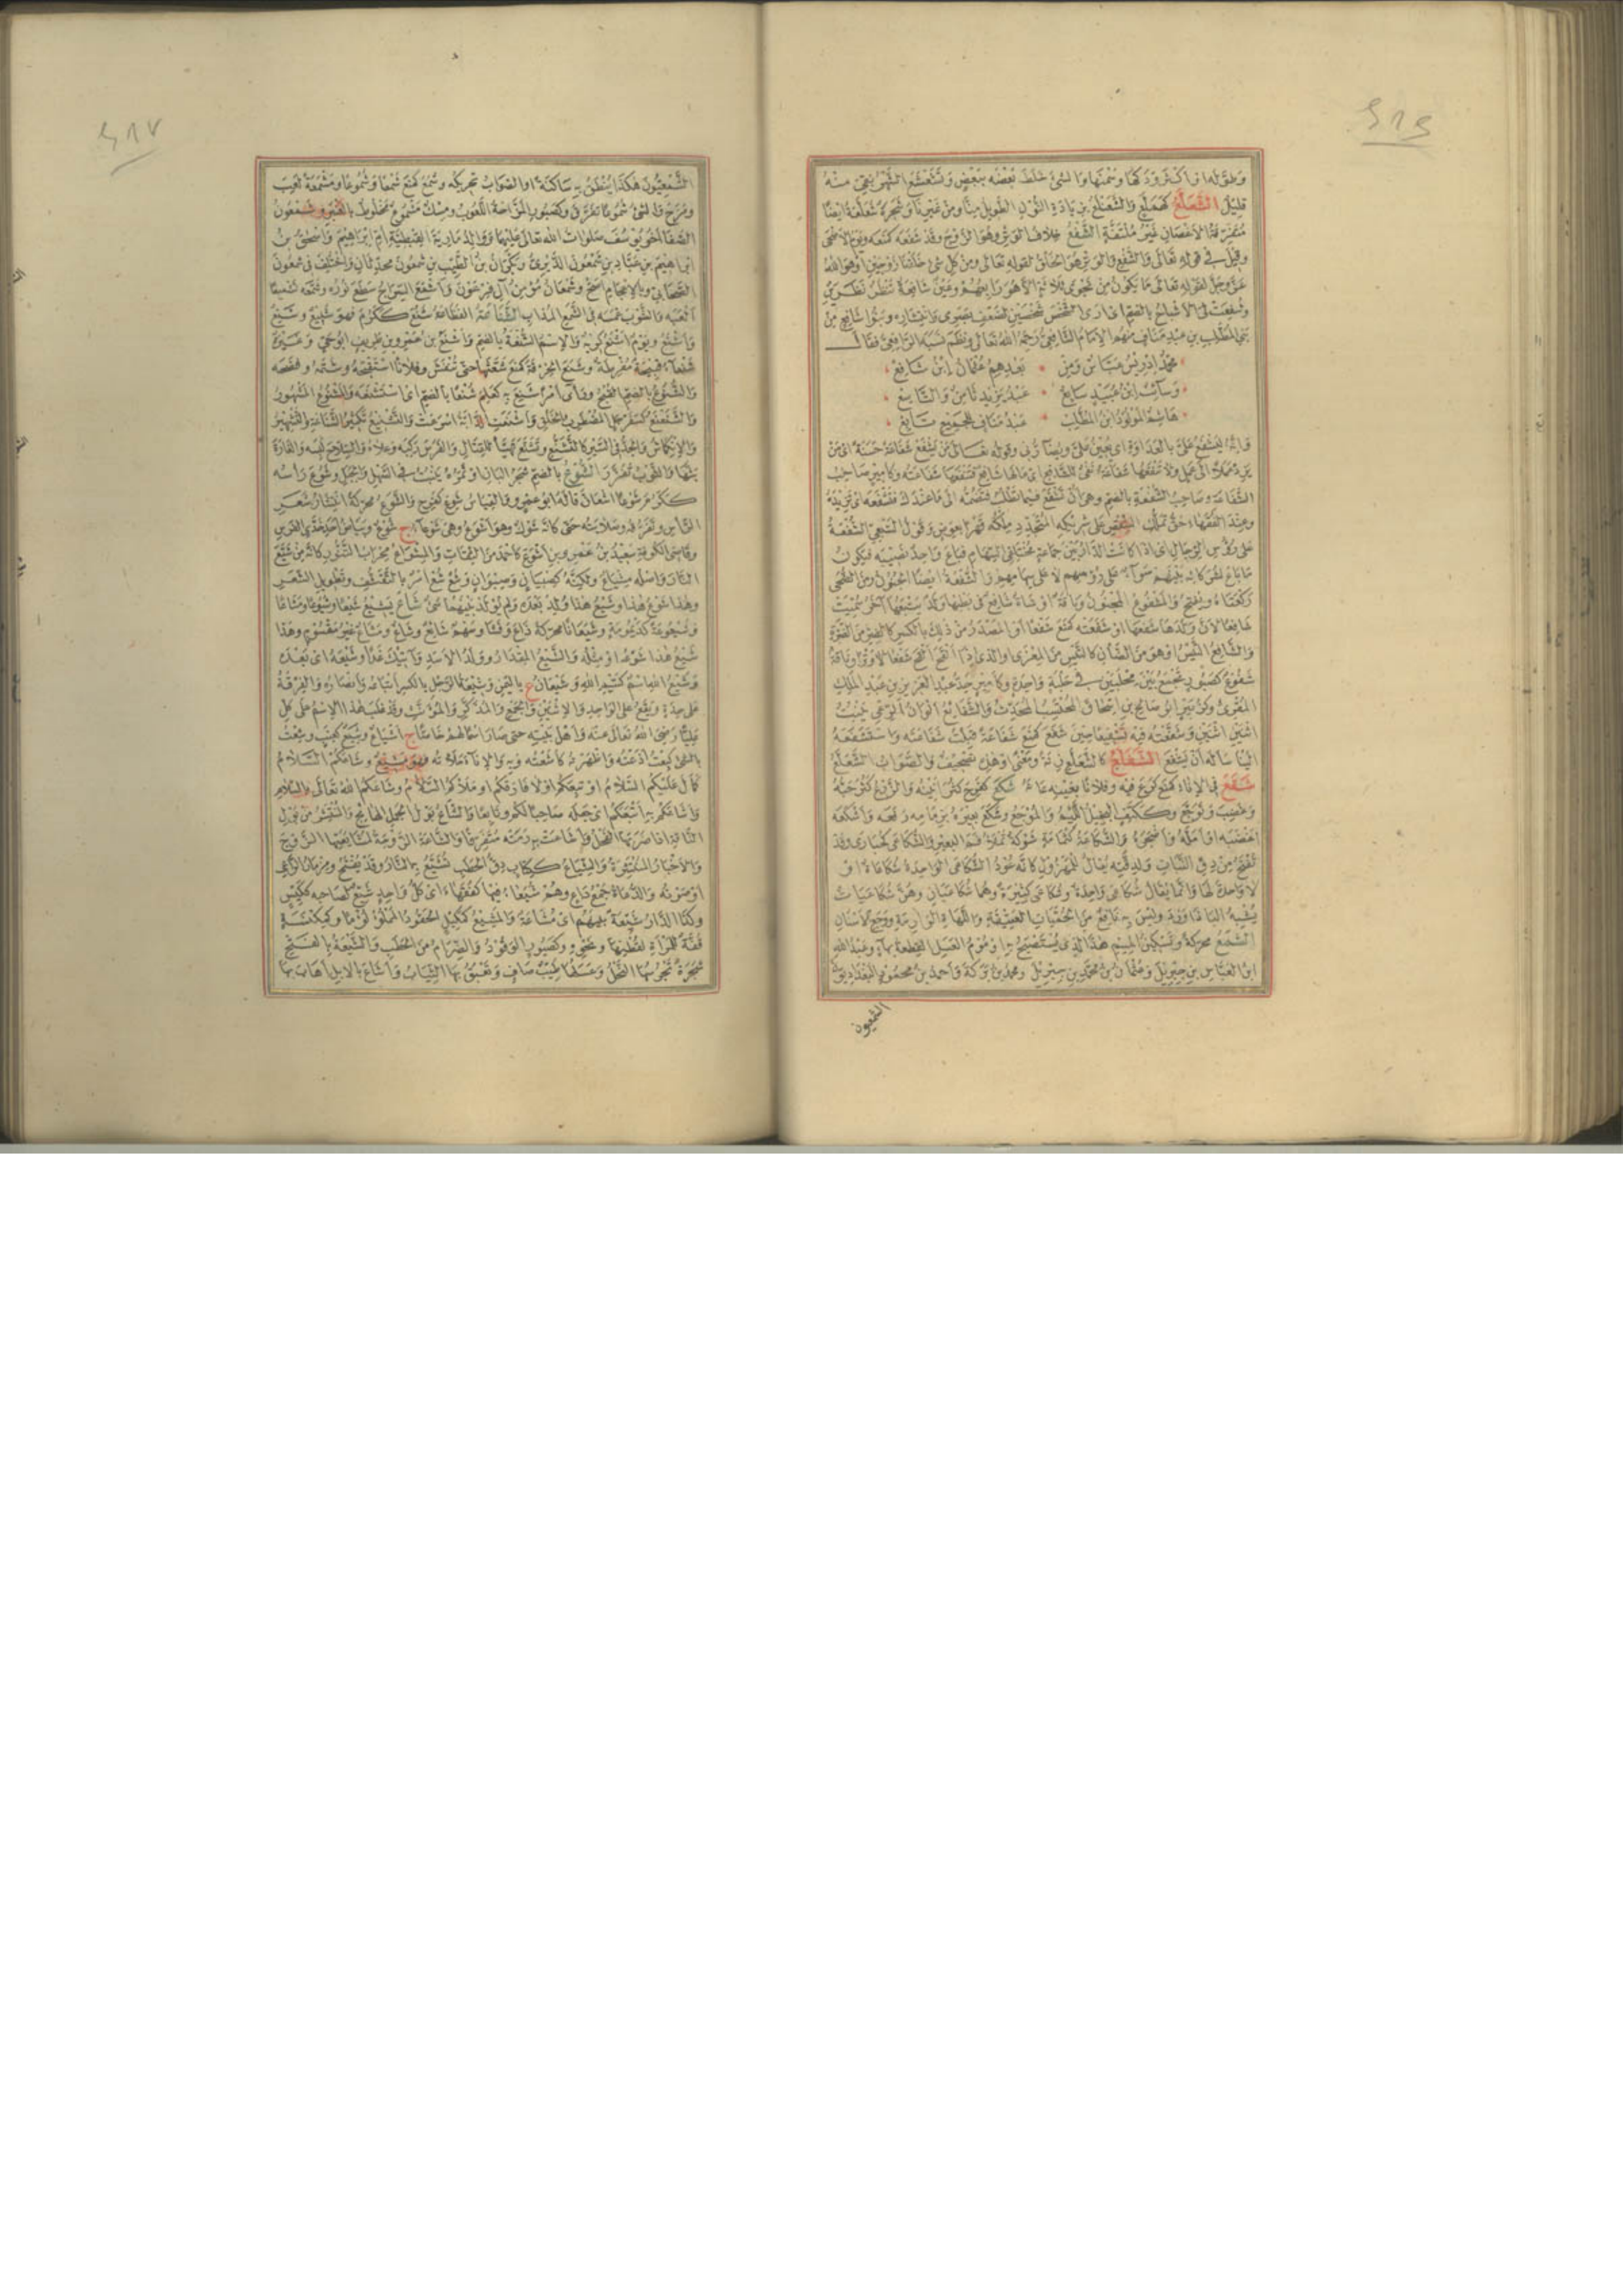 وطوله او اكثر ودكها وسمنها والشئ خلط بعضه ببعض وتشعشع الشهر بقى منه
قليل الشعلع كهملع والشعنلع بزيادة النون الطويل منا ومن غيرنا وشجرة شعلعة ايضا
متفرقة الاغصان غير ملتفة الشفع خلاف الوتر وهو الزوج وقد شفعه كمنعه ويوم الاضحى
وقيل فى قوله تعالى والشفع والوتر هو الخلق لقوله تعالى ومن كل شئ خلقنا زوجين او هو الله
عز وجل لقوله تعالى ما يكون من نجوى ثلاثة الا هو رابعهم وعين شافعة تنظر نظرين
وشفعت لى الاشباح بالضم اى ارى الشخص شخصين لضعف بصرى وانتشاره وبنو شافع من
بنى المطلب بن عبد مناف منهم الامام الشافعى رحمه الله تعالى ونظم نسبه الرافعى فقال
محمد ادريس عباس ومن بعدهم عثمان ابن شافع
وسائب ابن عبيد سابع عبد يزيد ثامن والتاسع
هاشم المولود ابن المطلب عبد مناف للجميع تابع
وانه ليشفع على بالعداوة اى يعين على ويضارنى وقوله تعالى من يشفع شفاعة حسنة اى من
يزد عملا الى عمل ولا تنفعها شفاعة نفى للشافع اى مالها شافع فتنفعها شفاعته وكامير صاحب
الشفاعة وصاحب الشفعة بالضم وهى ان تشفع فيما تطلب فتضمه الى ما عندك فتشفعه اى تزيده
وعند الفقهاء حق تملك الشقص على شريكه المتجدد ملكه قهرا بعوض وقول الشعبى الشفعة
على رؤس الرجال اى اذا كانت الدار بين جماعة مختلفى السهام فباع واحد نصيبه فيكون
ما باع لشركائه بينهم سواء على رؤسهم لا على سهامهم والشفعة ايضا الجنون ومن الضحى
ركعتاه ويفتح والمشفوع المجنون وناقة او شاة شافع فى بطنها ولد يتبعها آخر سميت
شافعا لان ولدها شفعها او شفعته كمنع شفعا او المصدر من ذلك بالكسر كالضر من الضرة
والشافع التيس او هو من الضان كالتيس من المعزى او الذى اذا القح القح شفعا لا وترا وناقة
شفوع كصبور تجمع بين محلبين فى حلبة واحدة وكامير جد عبد العزيز بن عبد الملك
المقرئ وكزبير ابو صالح بن اسحاق المحتسب المحدث والشفائع الوان الرعى ينبت
اثنين اثنين وشفعته فيه تشفيعا حين شفع كمنع شفاعة قبلت شفاعته واستشفعه
الينا ساله ان يشفع الشفلع كالشعلع زنة ومعنى او هى تصحيف والصواب الشعلع
شقع فى الاناء كمنع كرع فيه وفلانا بعينه عانه شكع كفرح كثر انينه والزرع كثر حبه
وغضب وتوجع وككتف البخيل اللئيم والموجع وشكع بعيره بزمامه رفعه واشكعه
اغضبه او امله واضجره والشكاعة كثمامة شوكة تملا فم البعير والشكاعى كحبارى وقد
تفتح من دق النبات ولدقته يقال للمهزول كانه عود الشكاعى الواحدة شكاعاة او
لا واحدة لها وانما يقال شكاعى واحدة وشكاعى كثيرة وهما شكاعيان وهن شكاعيات
يشبه الباذاورد وليس به نافع من الحميات العتيقة واللهاة الوارمة ووجع الاسنان
الشمع محركة وتسكين الميم هذا الذى يستصبح به او موم العسل القطعة بهاء وعبد الله
ابن العباس بن جبريل وعثمان بن محمد بن جبريل ومحمد بن بركة واحمد بن محمود البغداديون
الشمعيون
٤١٧
الشمعيون هكذا ينطق به ساكنة والصواب تحريكه وشمع كمنع شمعا وشموعا ومشمعة لعب
ومزح والشئ شموعا تفرق وكصبور المزاحة اللعوب ومسك مشموع مخلوط بالعنبر وشمعون
الصفا اخو يوسف صلوات الله تعالى عليهما ووالد مارية القبطية ام ابراهيم واسحق بن
ابراهيم بن عباد بن شمعون الديرى وبكر بن الطيب بن شمعون محدثان واختلف فى شمعون
الصحابى وبالاعجام اصح وشمعان مؤمن آل فرعون واشمع السراج سطع نوره وشمعه تشميعا
العبه والثوب غمسه فى الشمع المذاب الشناعة الفظاعة شنع ككرم فهو شنيع وشنع
واشنع ويوم اشنع كريه والاسم الشنعة بالضم واشنع بن عمرو بن طريف ابو حى وغيرة
شنعاء قبيحة مفرطة وشنع الخرقة كمنع شعثها حتى تنفش وفلانا استقبحه وشتمه وفضحه
والشنوع بالضم القبح وراى امرا شنع به كعلم شنعا بالضم اى استشنعه والمشنوع المشهور
والشنعنع كسفرجل المضطرب الخلق واشنعت الناقة اسرعت والتشنيع تكثير الشناعة والتشمير
والانكماش والجد فى السير كالتشنع وتشنع تهيا للقتال والفرس ركبه وعلاه والسلاح لبسه والغارة
بثها والثوب تفزر الشوع بالضم شجر البان او ثمره ينبت فى السهل والجبل وشوع راسه
ككرم شوعا اشعان قاله ابو عمرو والقياس شوع كفرح والشوع محركة انتشار شعر
الراس وتفرقه وصلابته حتى كانه شوك وهو اشوع وهى شوعاء ج شوع وبياض احد خدى الفرس
وقاضى الكوفة سعيد بن عمرو بن اشوع كاحمد من الثقات والمشواع محراث التنور كانه من شيع
النار واصله مشياع
وهذا شوع هذا وشيع هذا ولد بعده ولم يولد بينهما شئ شاع يشيع شيعا وشيوعا ومشاعا
وشيعوعة كديمومة وشيعانا محركة ذاع وفشا وسهم شائع وشاع ومشاع غير مقسوم وهذا
شيع هذا شوعه او مثله والشيع المقدار وولد الاسد وآتيك غدا او شيعه اى بعده
وشيع الله اسم كتيم الله وشيعان ع باليمن وشيعة الرجل بالكسر اتباعه وانصاره والفرقة
على حدة ويقع على الواحد والاثنين والجمع والمذكر والمؤنث وقد غلب هذا الاسم على كل
عليا رضى الله تعالى عنه واهل بيته حتى صار اسما لهم خاصا ج اشياع وشيع كعنب وشعت
بالشئ كبعت اذعته واظهرته كاشعته وبه والاناء ملاته فهو مشيع وشاعكم السلام
كمال عليكم السلام او تبعكم او لا فارقكم او ملاكم السلام وشاعكم الله تعالى بالسلام
واشاعكم به اتبعكم اى جعله صاحبا لكم وتابعا والشاع بول الجمل الهائج والمنتشر من بول
الناقة اذا ضربها الفحل واشاعت به رمته متفرقا والشاعة الزوجة لمشايعتها الزوج
والاخبار المنتشرة والشياع ككتاب دق الحطب تشيع به النار وقد يفتح ومزمار الراعى
او صوته والدعاة جمع داع وهم شيعاء فيها كفقهاء اى كل واحد شيع لصاحبه ككيس
وكذا الدار شيعة بينهم اى مشاعة والمشيع كمكيل الحقود المملوء لؤما وكمكنسة
قفة للمراة لقطنها ونحوه وكصبور الوقود والضرام من الحطب والشيعة بالفتح
شجرة تجرسها النحل وعسلها طيب صاف وتعبق بها الثياب واشاع بالابل اهاب بها